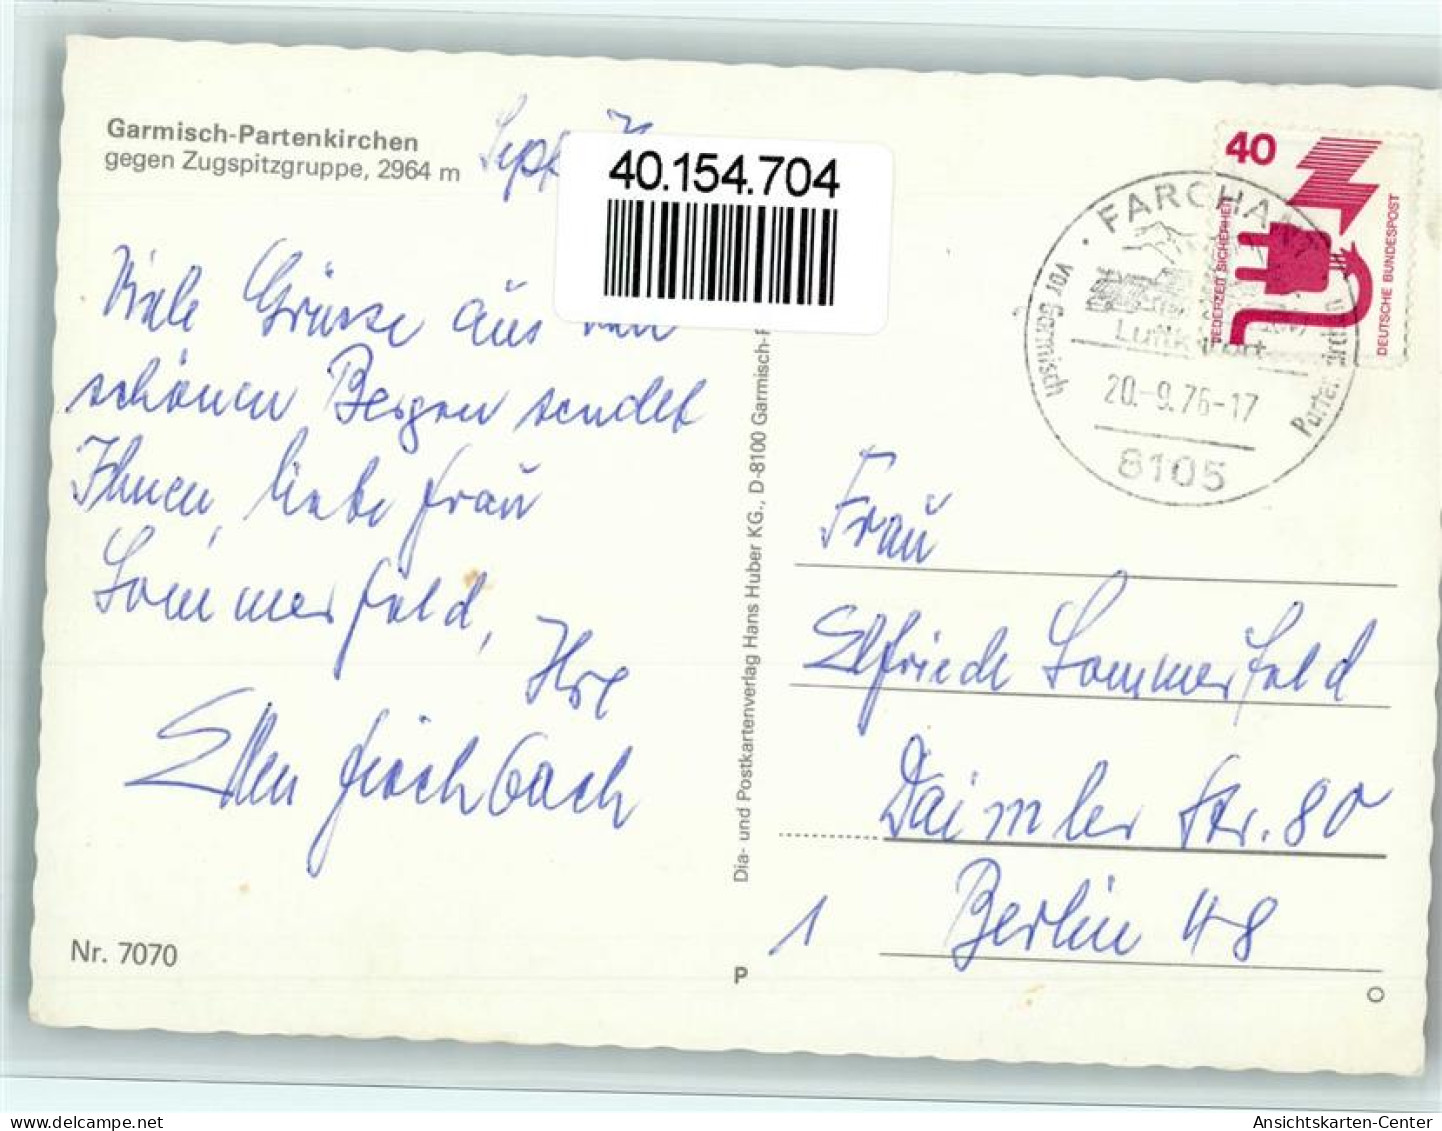 Garmisch-Partenkirchen
gegen Zugspitzgruppe, 2964 m
Sept.
40.154.704
Viele Grüsse aus den
schönen Bergen sendet
Ihnen, liebe Frau
Sommerfeld, Ihre
Ellen Fischbach
Nr. 7070
Dia- und Postkartenverlag Hans Huber KG., D-8100 Garmisch-P
P
40
JEDERZEIT SICHERHEIT
DEUTSCHE BUNDESPOST
FARCHANT
vor Garmisch
Partenkirchen
Luftkurort
20.-9.76-17
8105
Frau
Elfriede Sommerfeld
Daimler Str. 80
1 Berlin 48
Ansichtskarten-Center
delcampe.net